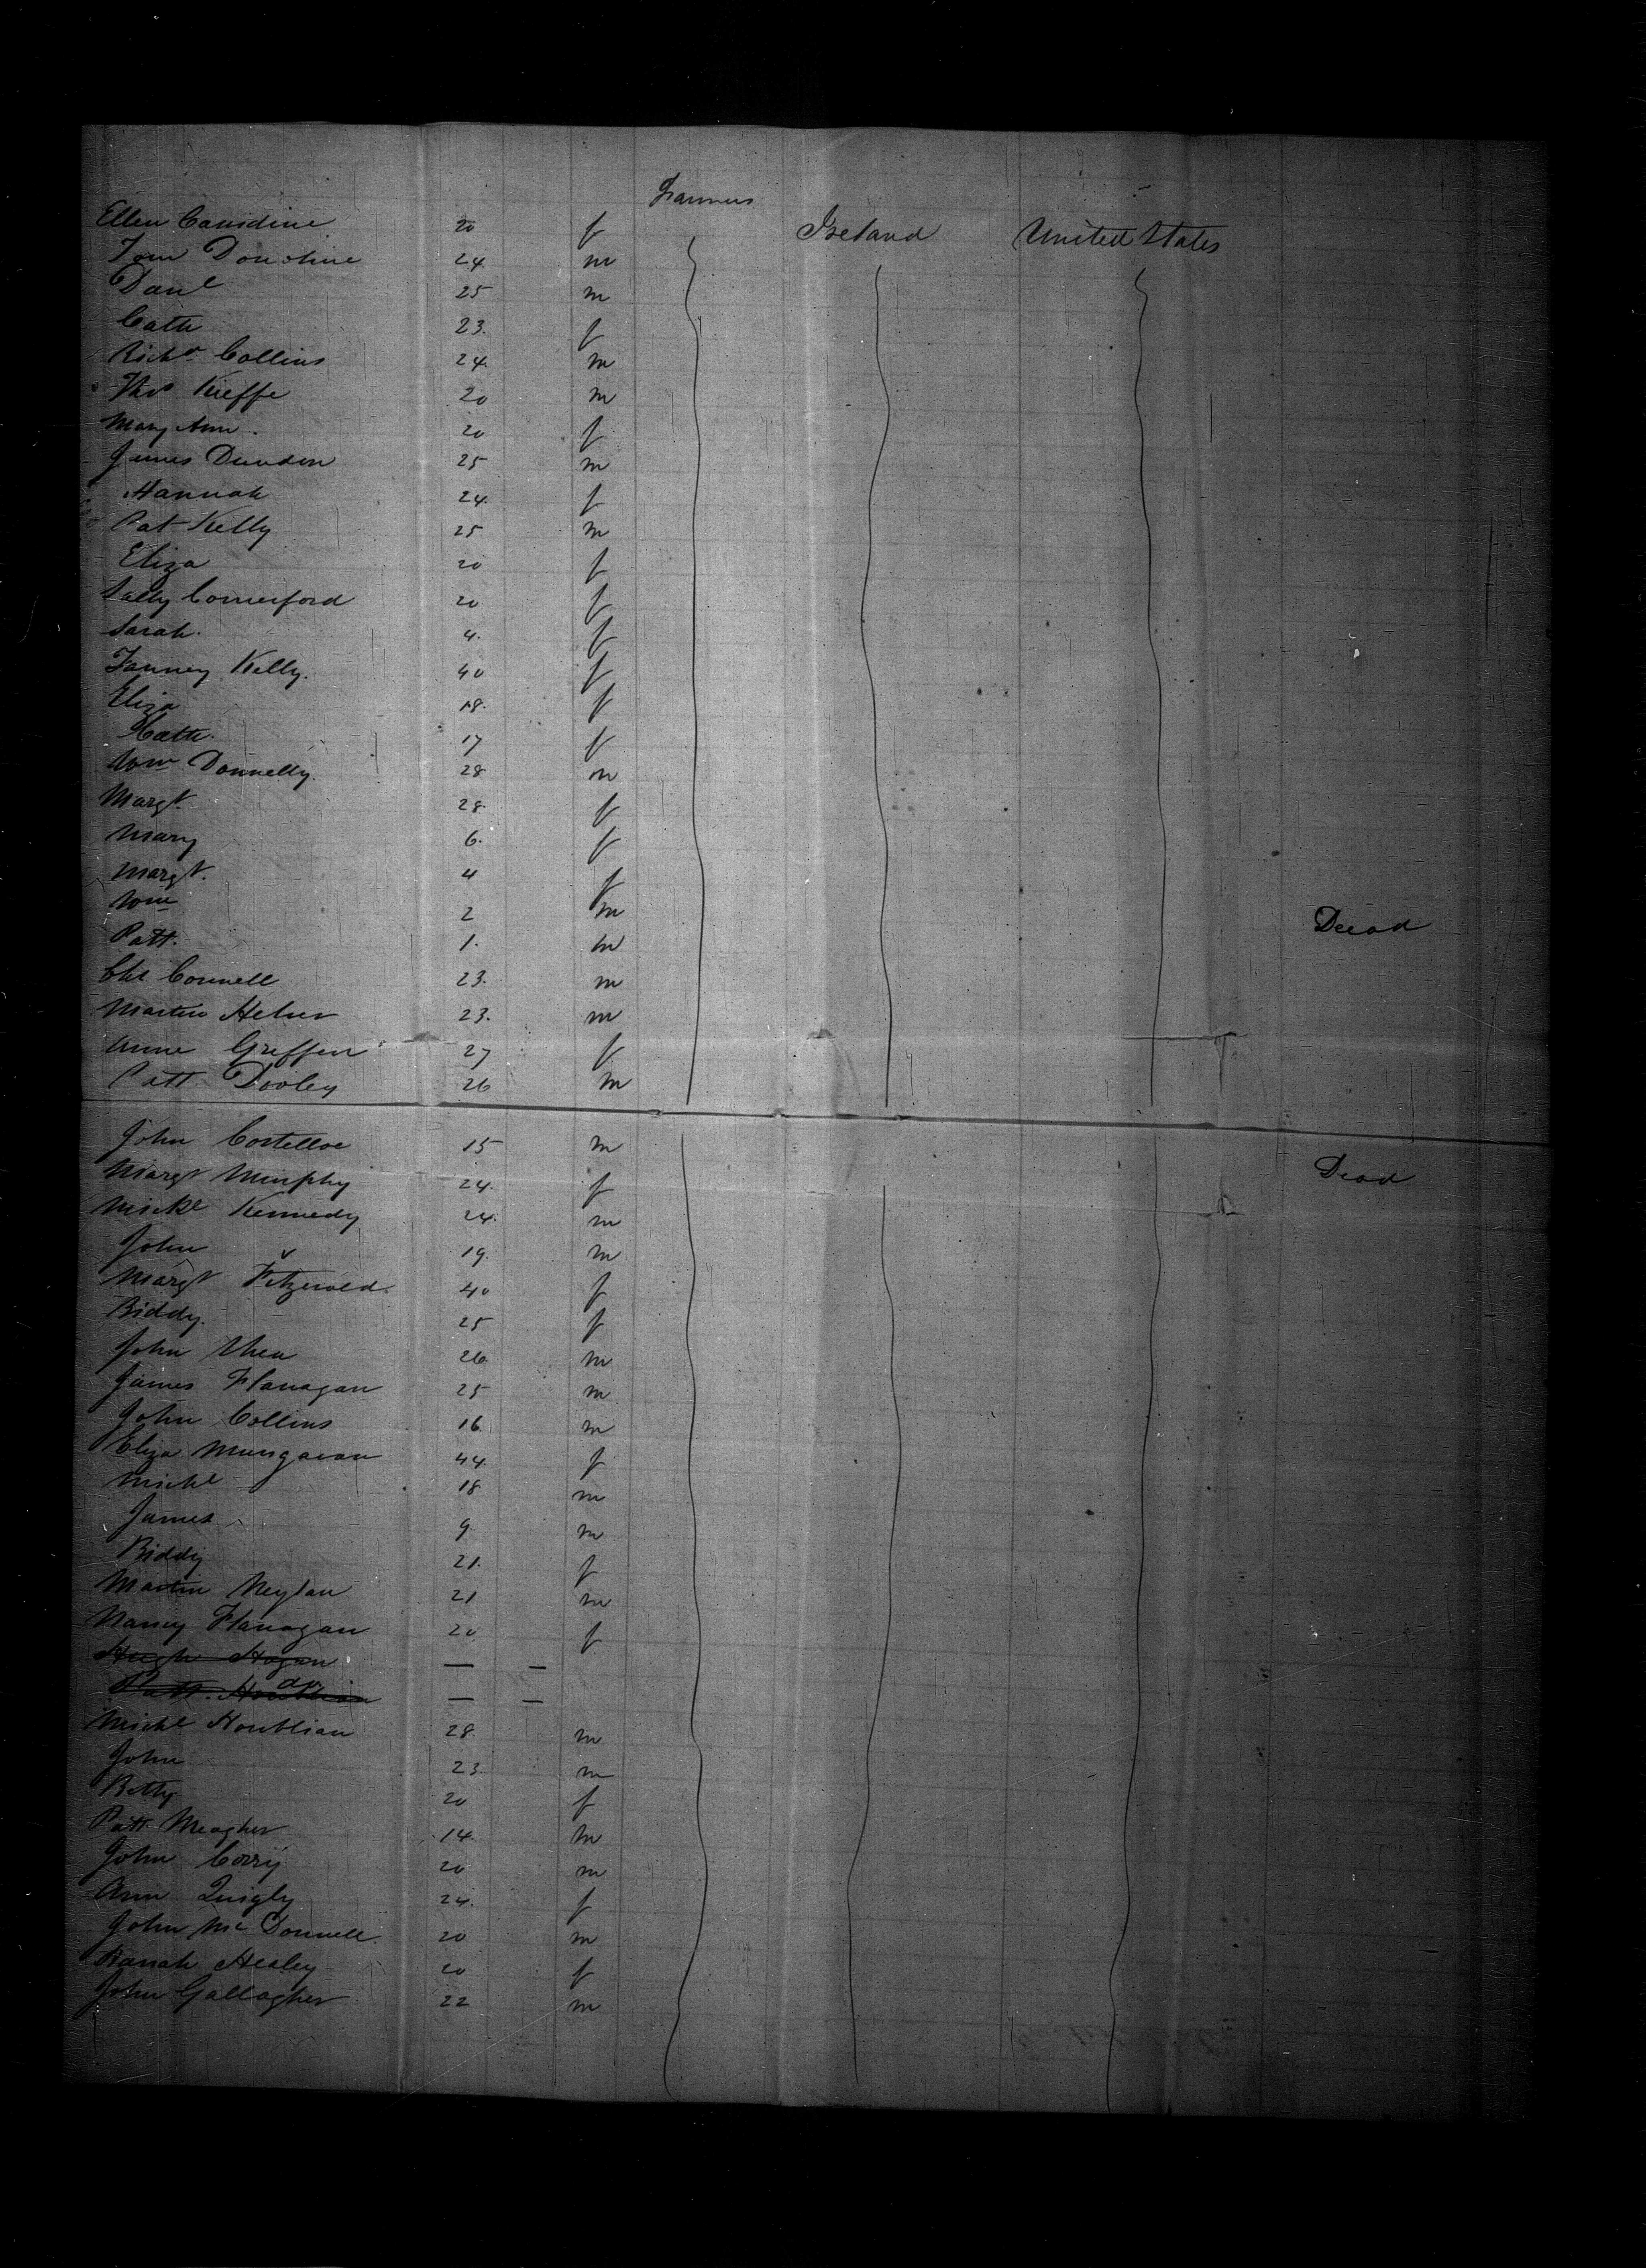 Farmers
Ellen Considine 20 f Ireland United States
Tom Donohue 24 m
Danl 25 m
Cath 23. f
Richd Collins 24. m
Thos Kieffe 20 m
Mary Ann. 20 f
James Dundon 25 m
Hannah 24. f
Pat Kelly 25 m
Eliza 20 f
Sally Comerford 20 f
Sarah. 4. f
Fanney Kelly. 40 f
Eliza 18. f
Cath. 17 f
Wm Donnelly. 28 m
Margt. 28. f
Mary 6. f
Margt. 4 f
Wm 2 m Dead
Patt. 1. m
Connell 23. m
Martin 23. m
Anne Greffen 27 f
Patt Dooley 26 m
John Costelloe 15 m
Margt Murphy 24. f Dead
Mickl Kennedy 24. m
John 19. m
Margt Fitzerald. 40 f
Biddy. 25 f
John Shea 26 m
James Flanagan 25 m
John Collins 16 m
Eliza Mungavan 44. f
Michl 18 m
James 9 m
Biddy 21. f
Martin Neylan 21 m
Nancy Flanagan 20 f
Hugh Hogan — —
Patt. do — —
Michl Houblian 28. m
John 23 m
Betty 20 f
Patt Meagher 14. m
John Corry 20 m
Ann Quigly 24. f
John Mc Donnell. 20 m
Hanah Healey 20 f
John Gallagher 22 m